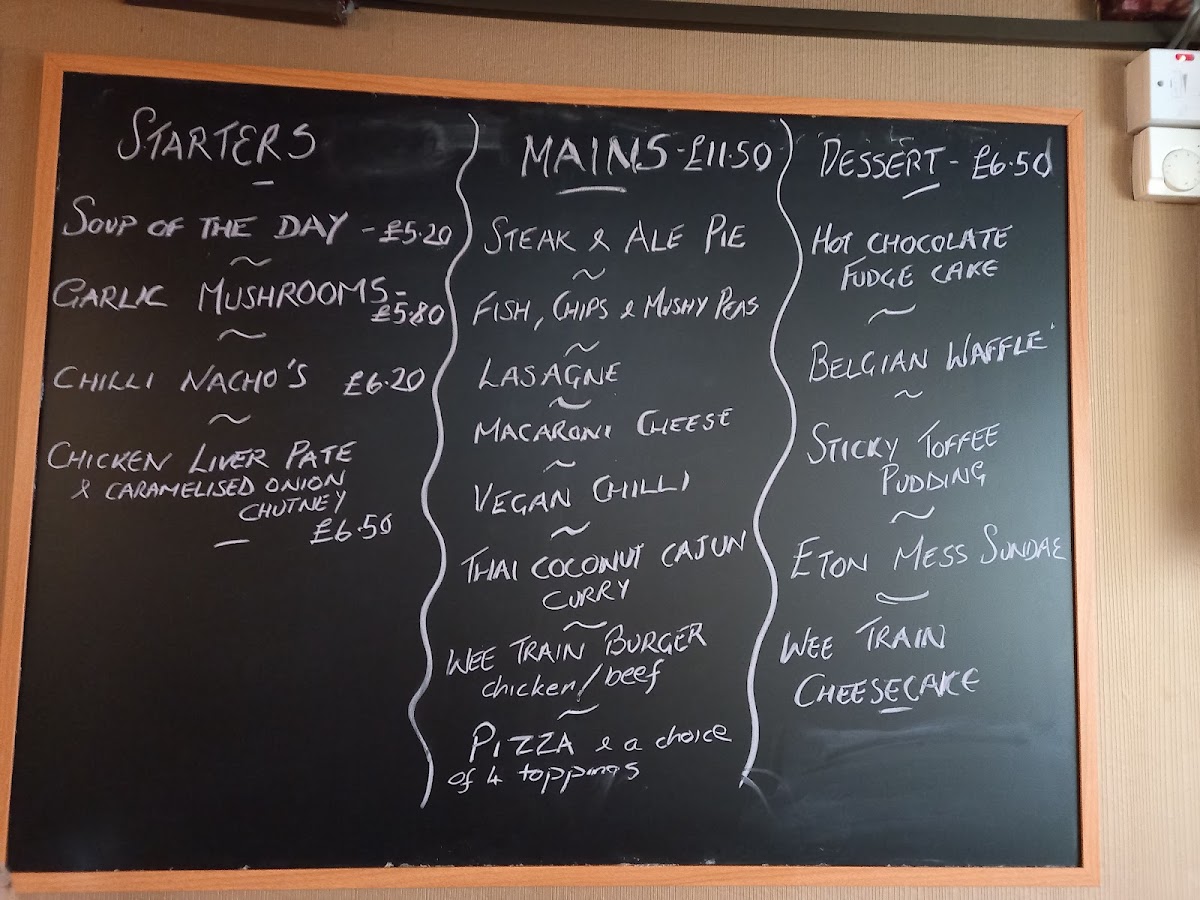 STARTERS
SOUP OF THE DAY - £5.20
GARLIC MUSHROOMS -
£5.80
CHILLI NACHO'S £6.20
CHICKEN LIVER PATE
& CARAMELISED ONION
CHUTNEY
£6.50
MAINS - £11.50
STEAK & ALE PIE
FISH, CHIPS & MUSHY PEAS
LASAGNE
MACARONI CHEESE
VEGAN CHILLI
THAI COCONUT CAJUN
CURRY
WEE TRAIN BURGER
chicken/beef
PIZZA & a choice
of 4 toppings
DESSERT - £6.50
HOT CHOCOLATE
FUDGE CAKE
BELGIAN WAFFLE
STICKY TOFFEE
PUDDING
ETON MESS SUNDAE
WEE TRAIN
CHEESECAKE